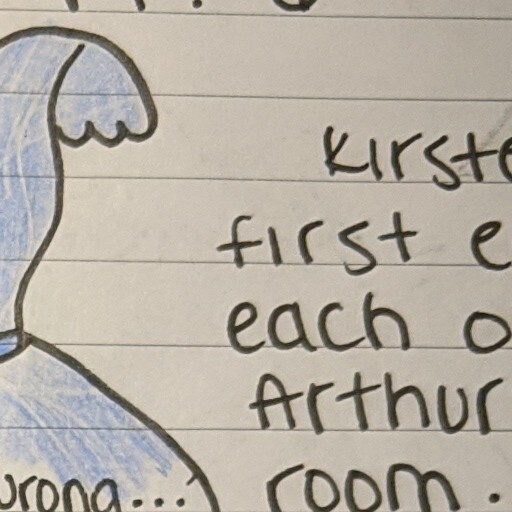 Kirste
first e
each o
Arthur
wrong... room.